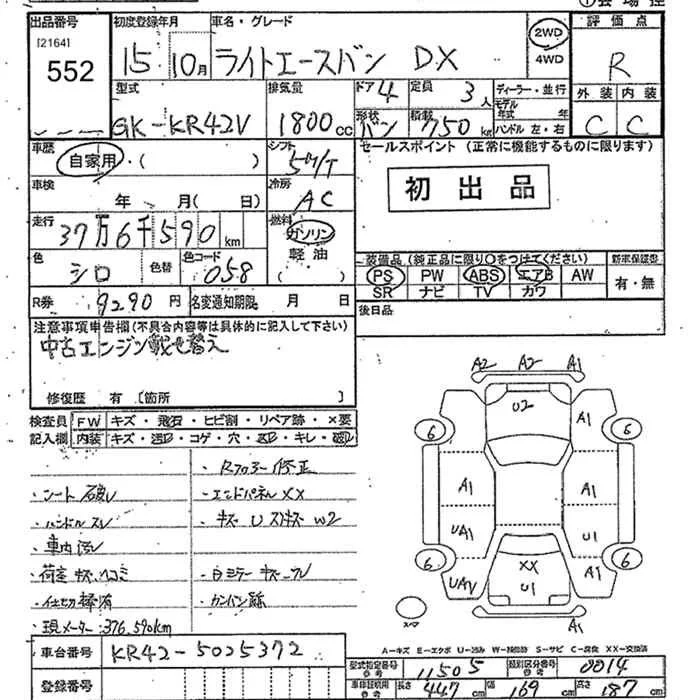 出品番号
[2164]
552
初度登録年月
15 10月
車名・グレード
ライトエースバン DX
2WD
4WD
評価点
R
外装 内装
C C
型式
GK-KR42V
排気量
1800cc
ドア 4
定員 3人
形状 バン
積載 750kg
ディーラー・並行
モデル年式 年
ハンドル 左・右
車歴
自家用・( )
シフト
5F/T
セールスポイント (正常に機能するものに限ります)
初出品
車検
年 月( 日)
冷房
AC
走行
37万6千590km
燃料
ガソリン
軽油
( )
色
シロ
色替
色コード
058
装備品(純正品に限り○をつけてください)
PS PW ABS エアB AW
SR ナビ TV カワ
新車保証書
有・無
R券
9290円
名変通知期限 月 日
後日品
注意事項申告欄(不具合内容等は具体的に記入して下さい)
中古エンジン載せ替え
修復歴 有 [箇所 ]
検査員記入欄
FW キズ・飛石・ヒビ割・リペア跡・×要
内装 キズ・汚レ・コゲ・穴・・キレ・破レ
・シート破レ
・ハンドルスレ
・車内汚レ
・荷室キズ・ヘコミ
・現メーター:376,590km
・Rフロアー修正
・エンドパネルXX
・キズ U W2
・カンバン跡
A2 A2 A1
U2
A1
6 6
A1 A1
UA1 U1
6 6
UAV
XX
U1
A1
A1
スペア
A-キズ E-エクボ U-凹み W-補修跡 S-サビ C-腐食 XX-交換済
車台番号
KR42-5025372
登録番号
型式指定番号 参考
11505
類別区分番号 参考
0014
車検証記載 参考
長さ 447cm 幅 169cm 高さ 187cm